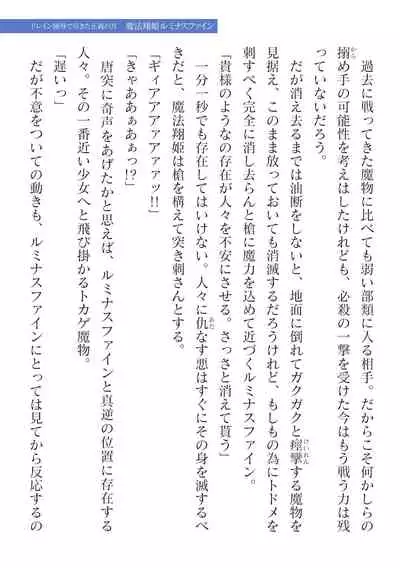 ドレイン凌辱で尽きた正義の刃　魔法翔姫ルミナスファイン
　過去に戦ってきた魔物に比べても弱い部類に入る相手。だからこそ何かしらの
搦め手の可能性を考えはしたけれども、必殺の一撃を受けた今はもう戦う力は残
っていないだろう。
　だが消え去るまでは油断をしないと、地面に倒れてガクガクと痙攣する魔物を
見据え、このまま放っておいても消滅するだろうけれど、もしもの為にトドメを
刺すべく完全に消し去らんと槍に魔力を込めて近づくルミナスファイン。
「貴様のような存在が人々を不安にさせる。さっさと消えて貰う」
　一分一秒でも存在してはいけない。人々に仇なす悪はすぐにその身を滅するべ
きだと、魔法翔姫は槍を構えて突き刺さんとする。
「ギィアアアァアアァッ!!」
「きゃああぁあぁっ!?」
　唐突に奇声をあげたかと思えば、ルミナスファインと真逆の位置に存在する
人々。その一番近い少女へと飛び掛かるトカゲ魔物。
「遅いっ」
　だが不意をついての動きも、ルミナスファインにとっては見てから反応するの